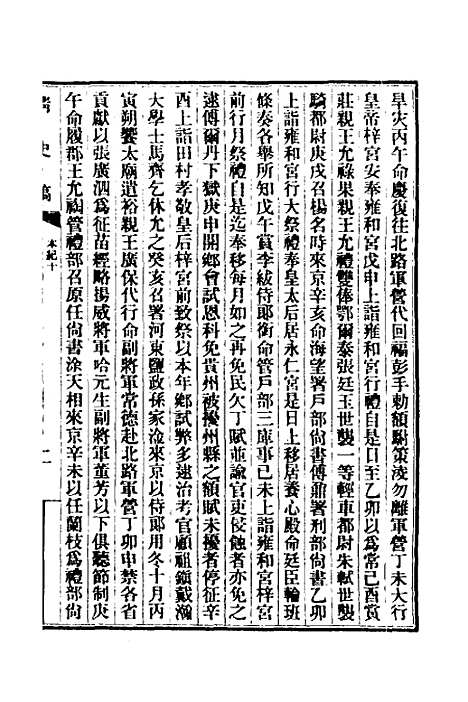 旱災丙午命慶復往北路軍營代回福彭手勅額駙策淩勿離軍營丁未大行
皇帝梓宮安奉雍和宮戊申上詣雍和宮行禮自是日至乙卯以爲常己酉賞
莊親王允祿果親王允禮雙俸鄂爾泰張廷玉世襲一等輕車都尉朱軾世襲
騎都尉庚戌召楊名時來京辛亥命海望署戶部尚書傅鼐署刑部尚書乙卯
上詣雍和宮行大祭禮奉皇太后居永仁宮是日上移居養心殿命廷臣輪班
條奏各舉所知戊午賞李紱侍郞銜命管戶部三庫事己未上詣雍和宮梓宮
前行月祭禮自是迄奉移每月如之再免民欠丁賦並諭官吏侵蝕者亦免之
逮傅爾丹下獄庚申開鄉會試恩科免貴州被擾州縣之額賦未擾者停征辛
酉上詣田村孝敬皇后梓宮前致祭以本年鄉試弊多逮治考官顧祖鎭戴瀚
大學士馬齊乞休允之癸亥召署河東鹽政孫家淦來京以侍郞用冬十月丙
寅朔饗太廟遣裕親王廣保代行命副將軍常德赴北路軍營丁卯申禁各省
貢獻以張廣泗爲征苗經略揚威將軍哈元生副將軍董芳以下俱聽節制庚
午命履郡王允祹管禮部召原任尚書涂天相來京辛未以任蘭枝爲禮部尚
清史稿
本紀十
二